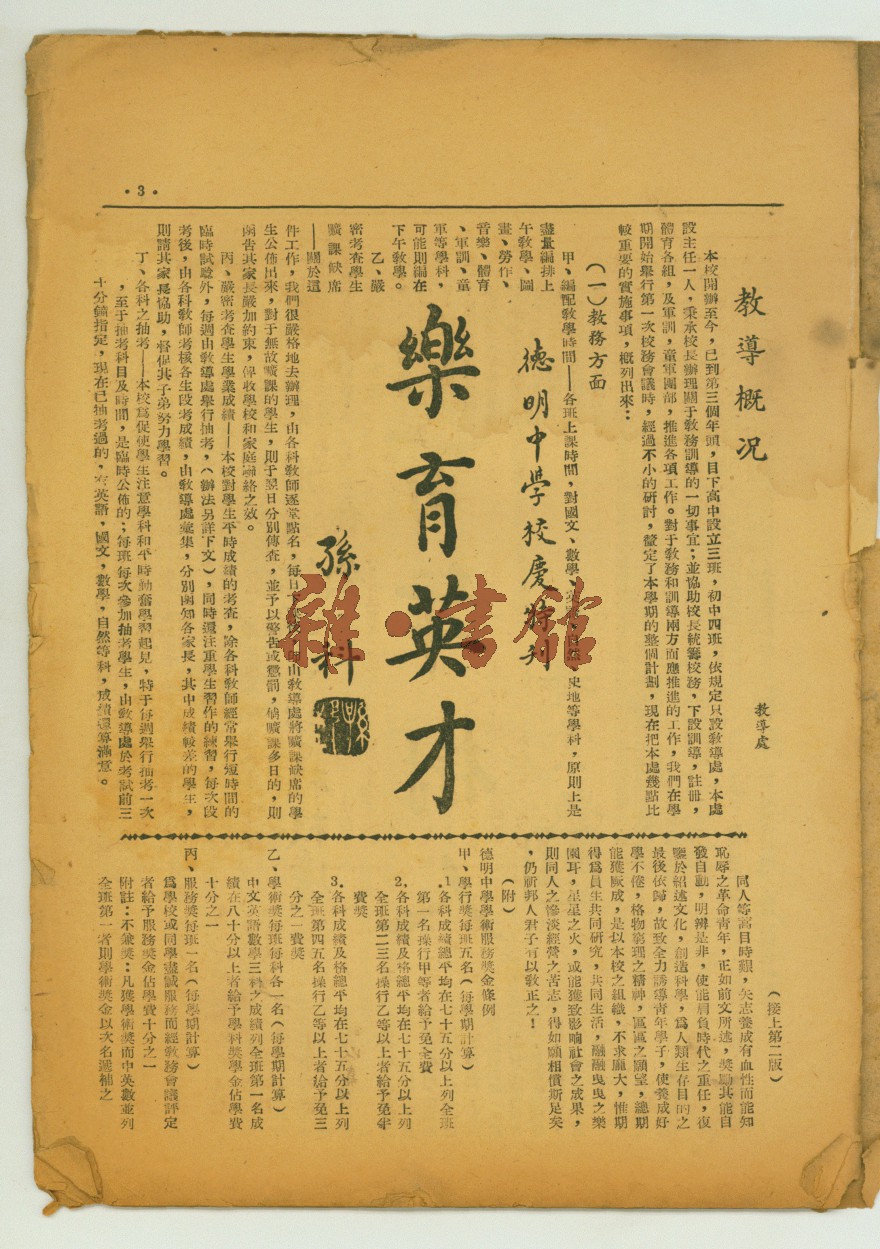 •3•
教導概況
教導處
本校開辦至今，已到第三個年頭，目下高中設立三班，初中四班，依規定只設敎導處，本處
設主任一人，秉承校長辦理關于敎務訓導的一切事宜；並協助校長統籌校務，下設訓導，註冊，
體育各組，及軍訓，童軍團部，推進各項工作。對于敎務和訓導兩方面應推進的工作，我們在學
期開始舉行第一次校務會議時，經過不小的研討，釐定了本學期的整個計劃，現在把本處幾點比
較重要的實施事項，概列出來：
（一）敎務方面
甲、編配敎學時間——各班上課時間，對國文、數學、史地等學科，原則上是
盡量編排上
午敎學、圖
畫、勞作、
音樂、體育
、軍訓、童
軍等學科，
可能則編在
下午敎學。
乙、嚴
密考查學生
曠課缺席
——關於這
件工作，我們很嚴格地去辦理，由各科敎師逐堂點名，每日由敎導處將曠課缺席的學
生公佈出來，對于無故曠課的學生，則于翌日分別傳查，並予以警告或懲罰，倘曠課多日的，則
函吿其家長嚴加約束，俾收學校和家庭聯絡之效。
丙、嚴密考查學生學業成績——本校對學生平時成績的考查，除各科敎師經常舉行短時間的
臨時試驗外，每週由敎導處舉行抽考，（辦法另詳下文），同時還注重學生習作的練習，每次段
考後，由各科敎師考核各生段考成績，由敎導處彙集，分別函知各家長，其中成績較差的學生，
則請其家長協助，督促其子弟努力學習。
丁、各科之抽考——本校爲促使學生注意學科和平時勤奮學習起見，特于每週舉行抽考一次
，至于抽考科目及時間，是臨時公佈的；每班每次參加抽考學生，由敎導處於考試前三
十分鐘指定，現在已抽考過的，有英語，國文，數學，自然等科，成績還算滿意。
德明中學校慶特刊
樂育英才
孫科
雜·書館
（接上第二版）
同人等蒿目時艱，矢志養成有血性而能知
恥辱之革命靑年，正如前文所述，獎勵其能自
發自動，明辯是非，使能肩負時代之重任，復
鑒於紹述文化，創造科學，爲人類生存目的之
最後依歸，故致全力誘導靑年學子，使養成好
學不倦，格物窮理之精神，區區之願望，總期
能獲厥成，是以本校之組織，不求龐大，惟期
得爲員生共同硏究，共同生活，融融曳曳之樂
園耳，星星之火，或能獲致影响社會之成果，
則同人之慘淡經營之苦志，得如願相償斯足矣
，仍祈邦人君子有以敎正之！
（附）
德明中學學術服務獎金條例
甲、學行獎每班五名（每學期計算）
1.各科成績總平均在七十五分以上列全班
第一名操行甲等者給予免全費
2.各科成績及格總平均在七十五分以上列
全班第二三名操行乙等以上者給予免半
費獎
3.各科成績及格總平均在七十五分以上列
全班第四五名操行乙等以上者給予免三
分之一費獎
乙、學術獎每班每科各一名（每學期計算）
中文英語數學三科之成績列全班第一名成
績在八十分以上者給予學科獎學金佔學費
十分之一
丙、服務獎每班一名（每學期計算）
爲學校或同學盡誠服務而經敎務會議評定
者給予服務獎金佔學費十分之一
附註：不兼獎：凡獲學術獎而中英數並列
全班第一者則學術獎金以次名遞補之